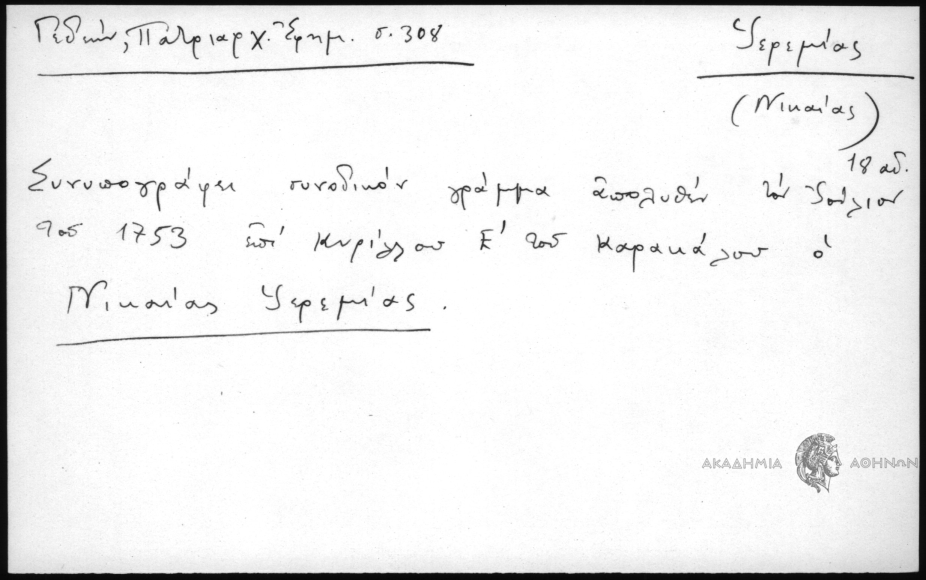 Γεδεών, Πατριαρχ. Ἐφημ. σ. 308
Ἱερεμίας
(Νικαίας)
18 αἰ.
Συνυπογράφει συνοδικὸν γράμμα ἀπολυθὲν τὸν Ἰούλιον
τοῦ 1753 ἐπὶ Κυρίλλου Ε' τοῦ Καρακάλου ὁ
Νικαίας Ἱερεμίας.
ΑΚΑΔΗΜΙΑ ΑΘΗΝΩΝ